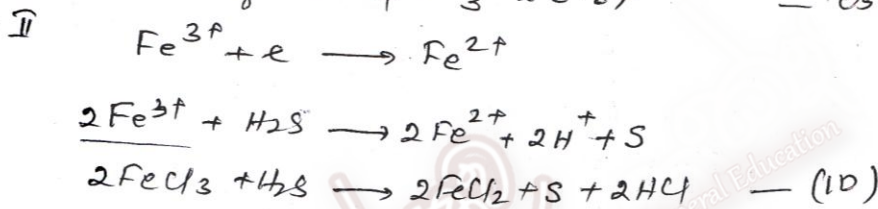 II
Fe³⁺ + e ⟶ Fe²⁺
2Fe³⁺ + H₂S ⟶ 2Fe²⁺ + 2H⁺ + S
2FeCl₃ + H₂S ⟶ 2FeCl₂ + S + 2HCl — (10)
eral Education